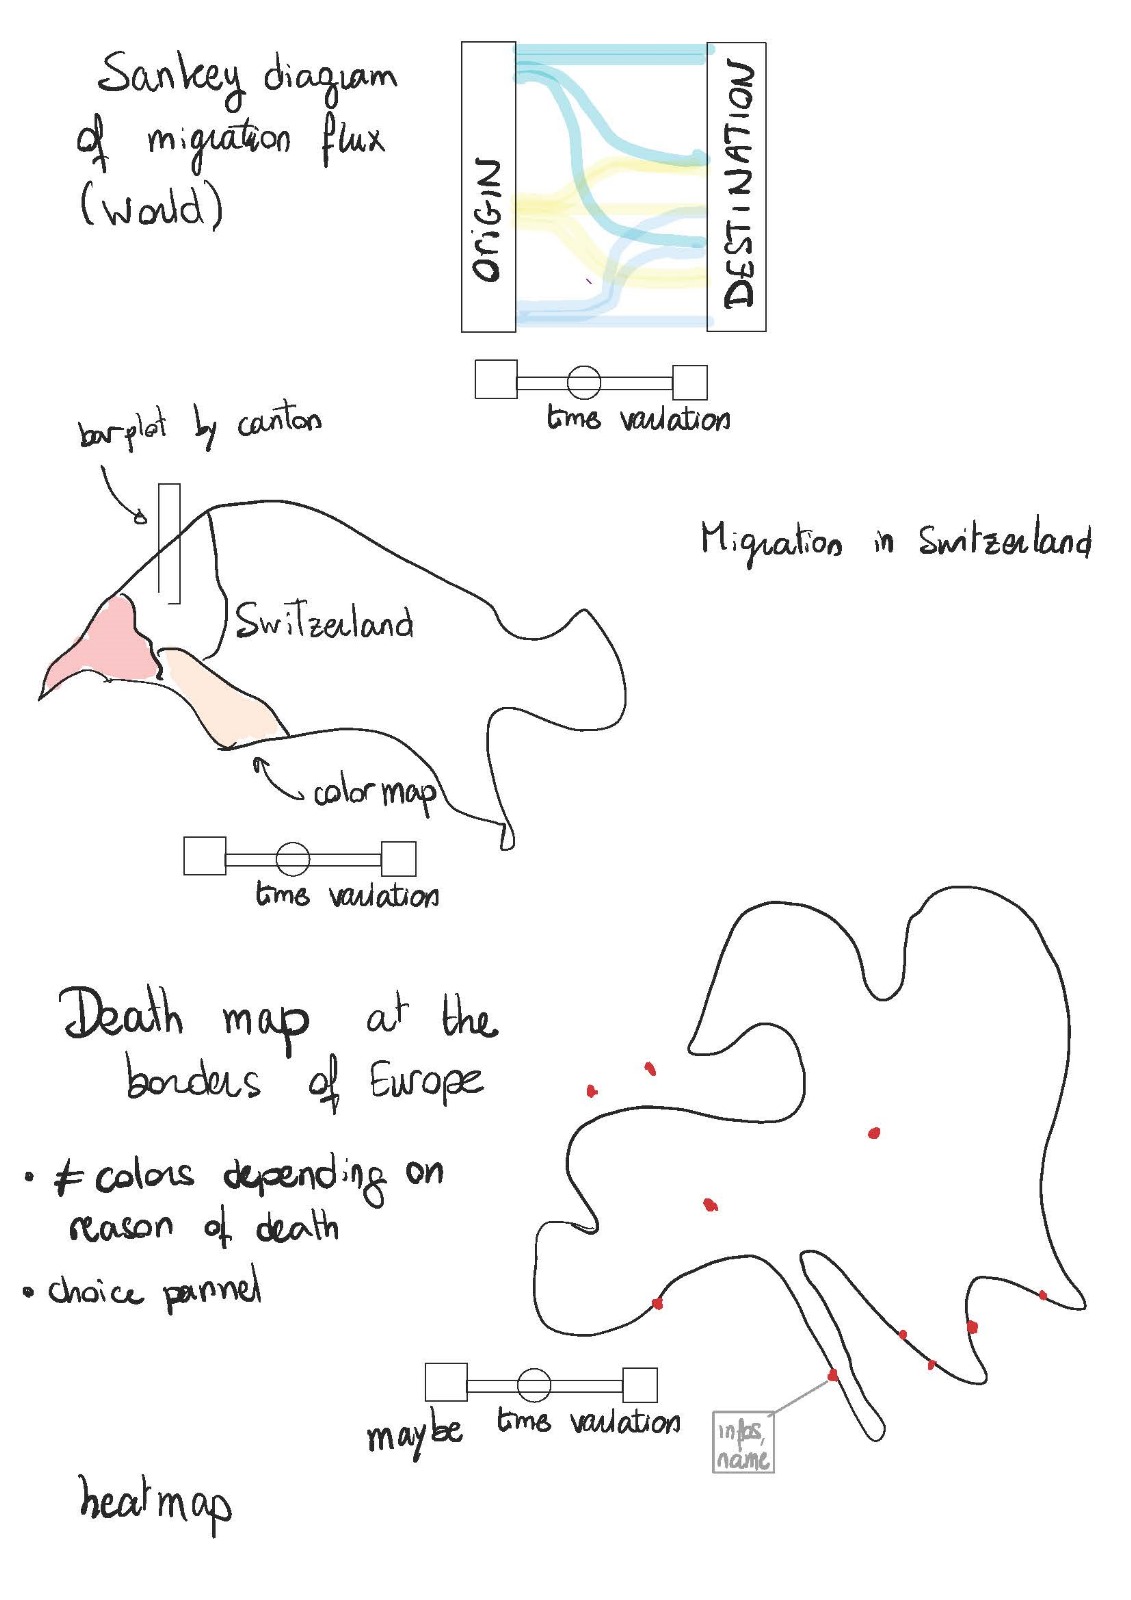 Sankey diagram
of migration flux
(world)
ORIGIN
DESTINATION
time variation
barplot by canton
Migration in Switzerland
Switzerland
color map
time variation
Death map at the
borders of Europe
• ≠ colors depending on
reason of death
• choice pannel
maybe time variation
infos,
name
heatmap